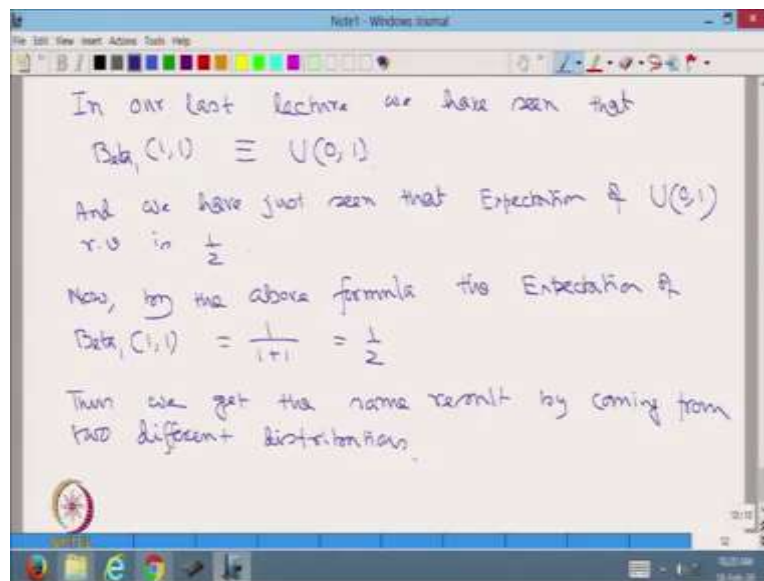 Note1 - Windows Journal
File Edit View Insert Actions Tools Help
In our last lecture we have seen that
Beta₁ (1,1) ≡ U(0,1)
And we have just seen that Expectation of U(0,1)
r.v is 1/2
Now, by the above formula the Expectation of
Beta₁ (1,1) = 1/(1+1) = 1/2
Thus we get the same result by coming from
two different distributions.
NPTEL